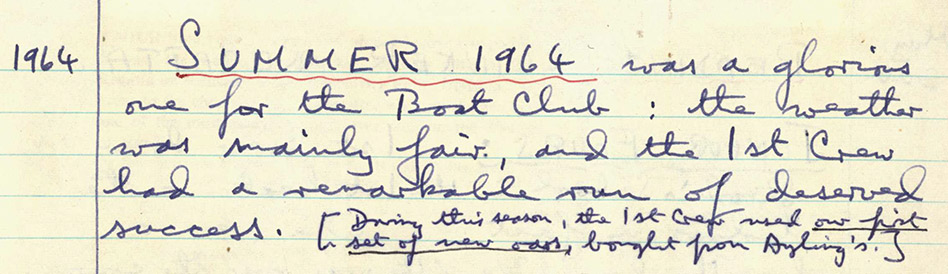 1964 SUMMER 1964 was a glorious
one for the Boat Club : the weather
was mainly fair, and the 1st Crew
had a remarkable run of deserved
success. [During this season, the 1st Crew used our first
set of new oars, bought from Ayling's.]